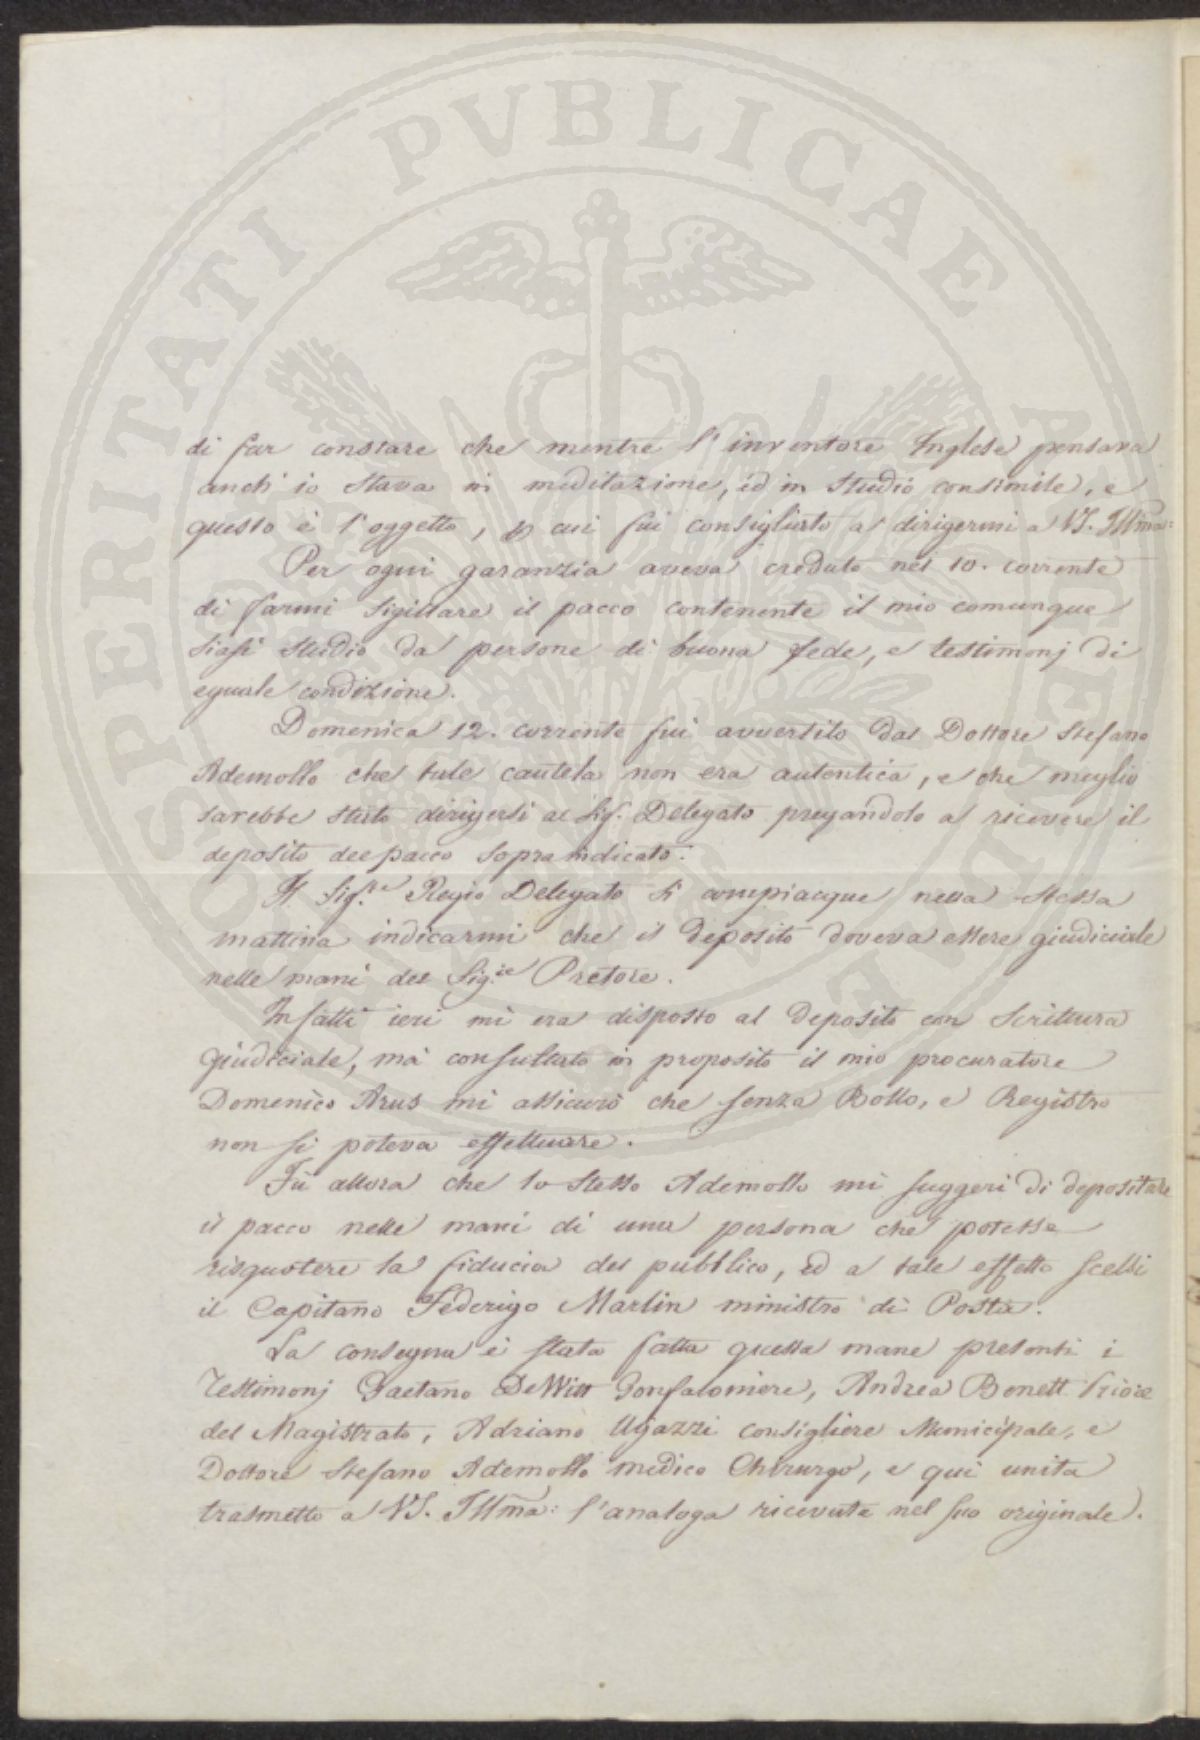 PROSPERITATI PVBLICAE AVGENDAE
di far constare che mentre l'inventore Inglese pensava
anch' io stava in meditazione, ed in studio consimile, e
questo è l'oggetto, p cui fui consigliato a dirigermi a VS. Illma:
Per ogni garanzia aveva creduto nel 10. corrente
di farmi sigillare il pacco contenente il mio comunque
siasi studio da persone di buona fede, e testimonj di
eguale condizione.
Domenica 12. corrente fui avvertito dal Dottore Stefano
Ademollo che tale cautela non era autentica, e che meglio
sarebbe stato dirigersi al Sig. Delegato pregandolo a ricevere il
deposito del pacco sopraindicato.
Il Sig.re Regio Delegato si compiacque nella stessa
mattina indicarmi che il deposito doveva essere giudiciale
nelle mani del Sig.re Pretore.
Infatti ieri mi era disposto al deposito con Scrittura
Giudiciale, mà consultato in proposito il mio procuratore
Domenico Arus mi assicurò che senza Bollo, e Registro
non si poteva effettuare.
Fù allora che lo stesso Ademollo mi suggerì di depositare
il pacco nelle mani di una persona che potesse
risquotere la fiducia del pubblico, ed a tale effetto scelsi
il Capitano Federigo Martin ministro di Posta.
La consegna è stata fatta questa mane presenti i
Testimonj Gaetano DeWitt Gonfaloniere, Andrea Bonett Priore
del Magistrato, Adriano Ugazzi consigliere Municipale, e
Dottore Stefano Ademollo medico Chirurgo, e quì unita
trasmetto a VS. Illma: l'analoga ricevuta nel suo originale.